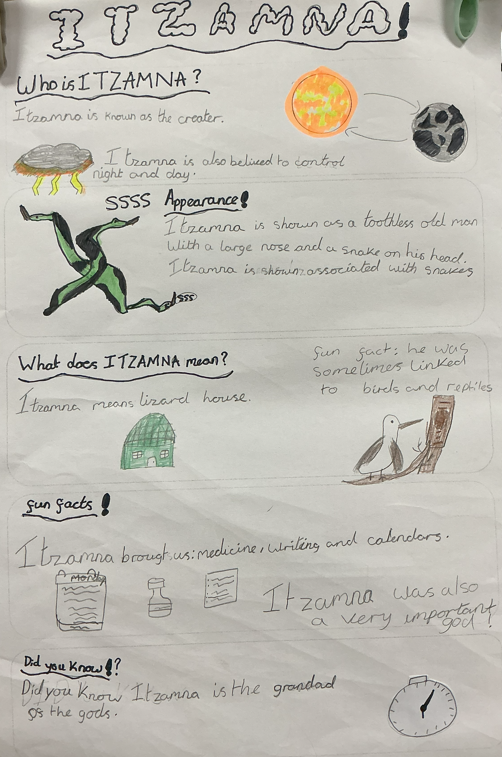 ITZAMNA!
Who is ITZAMNA?
Itzamna is known as the creater.
Itzamna is also belived to control
night and day.
SSSS
Appearance!
Itzamna is shown as a toothless old man
with a large nose and a snake on his head.
Itzamna is shown associated with snakes
sss
What does ITZAMNA mean?
Itzamna means lizard house.
fun fact: he was
sometimes linked
to birds and reptiles
fun facts!
Itzamna brought us: medicine, writing and calendars.
Month
Itzamna was also
a very important
god!
Did you know!?
Did you know Itzamna is the grandad
of the gods.